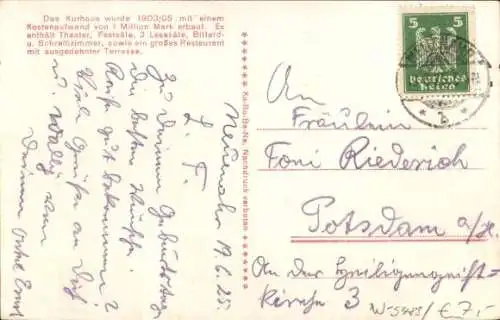 Das Kurhaus wurde 1903/05 mit einem
Kostenaufwand von 1 Million Mark erbaut. Es
enthält Theater, Festsäle, 3 Lesesäle, Billard-
u. Schreibzimmer, sowie ein großes Restaurant
mit ausgedehnter Terrasse.
Neuenahr 19.6.25.
L. T.
Zu Deinem Geburtstag
die besten Wünsche.
gut bekommen?
Viele Grüße an Dich
u. Wally von
Deinem Onkel Ernst
Ka-Ru-Be-Ne, Nachdruck verboten
5 5
Deutsches
Reich
b
An
Fräulein
Toni Riederich
Potsdam a/H.
An der Heiligengeist-
kirche 3
€ 7,-